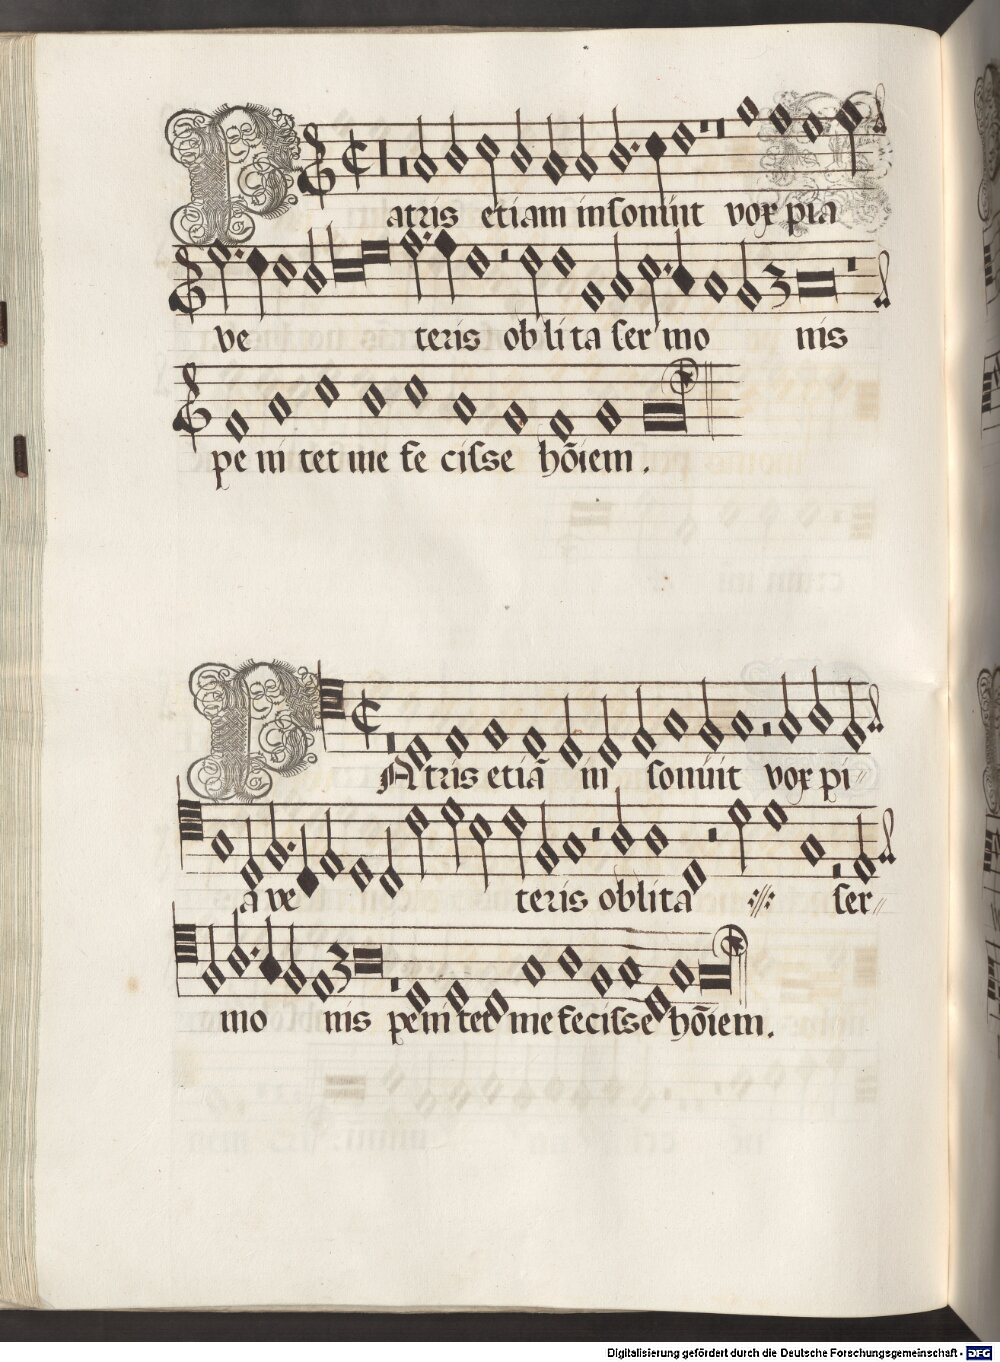 Patris etiam insonuit vox pia
ve teris oblita ser mo nis
pe ni tet me fe cisse hōiem.
PAtris etiā in sonuit vox pi
a ve teris oblita ser
mo nis penitet me fecisse hōiem.
Digitalisierung gefördert durch die Deutsche Forschungsgemeinschaft - DFG